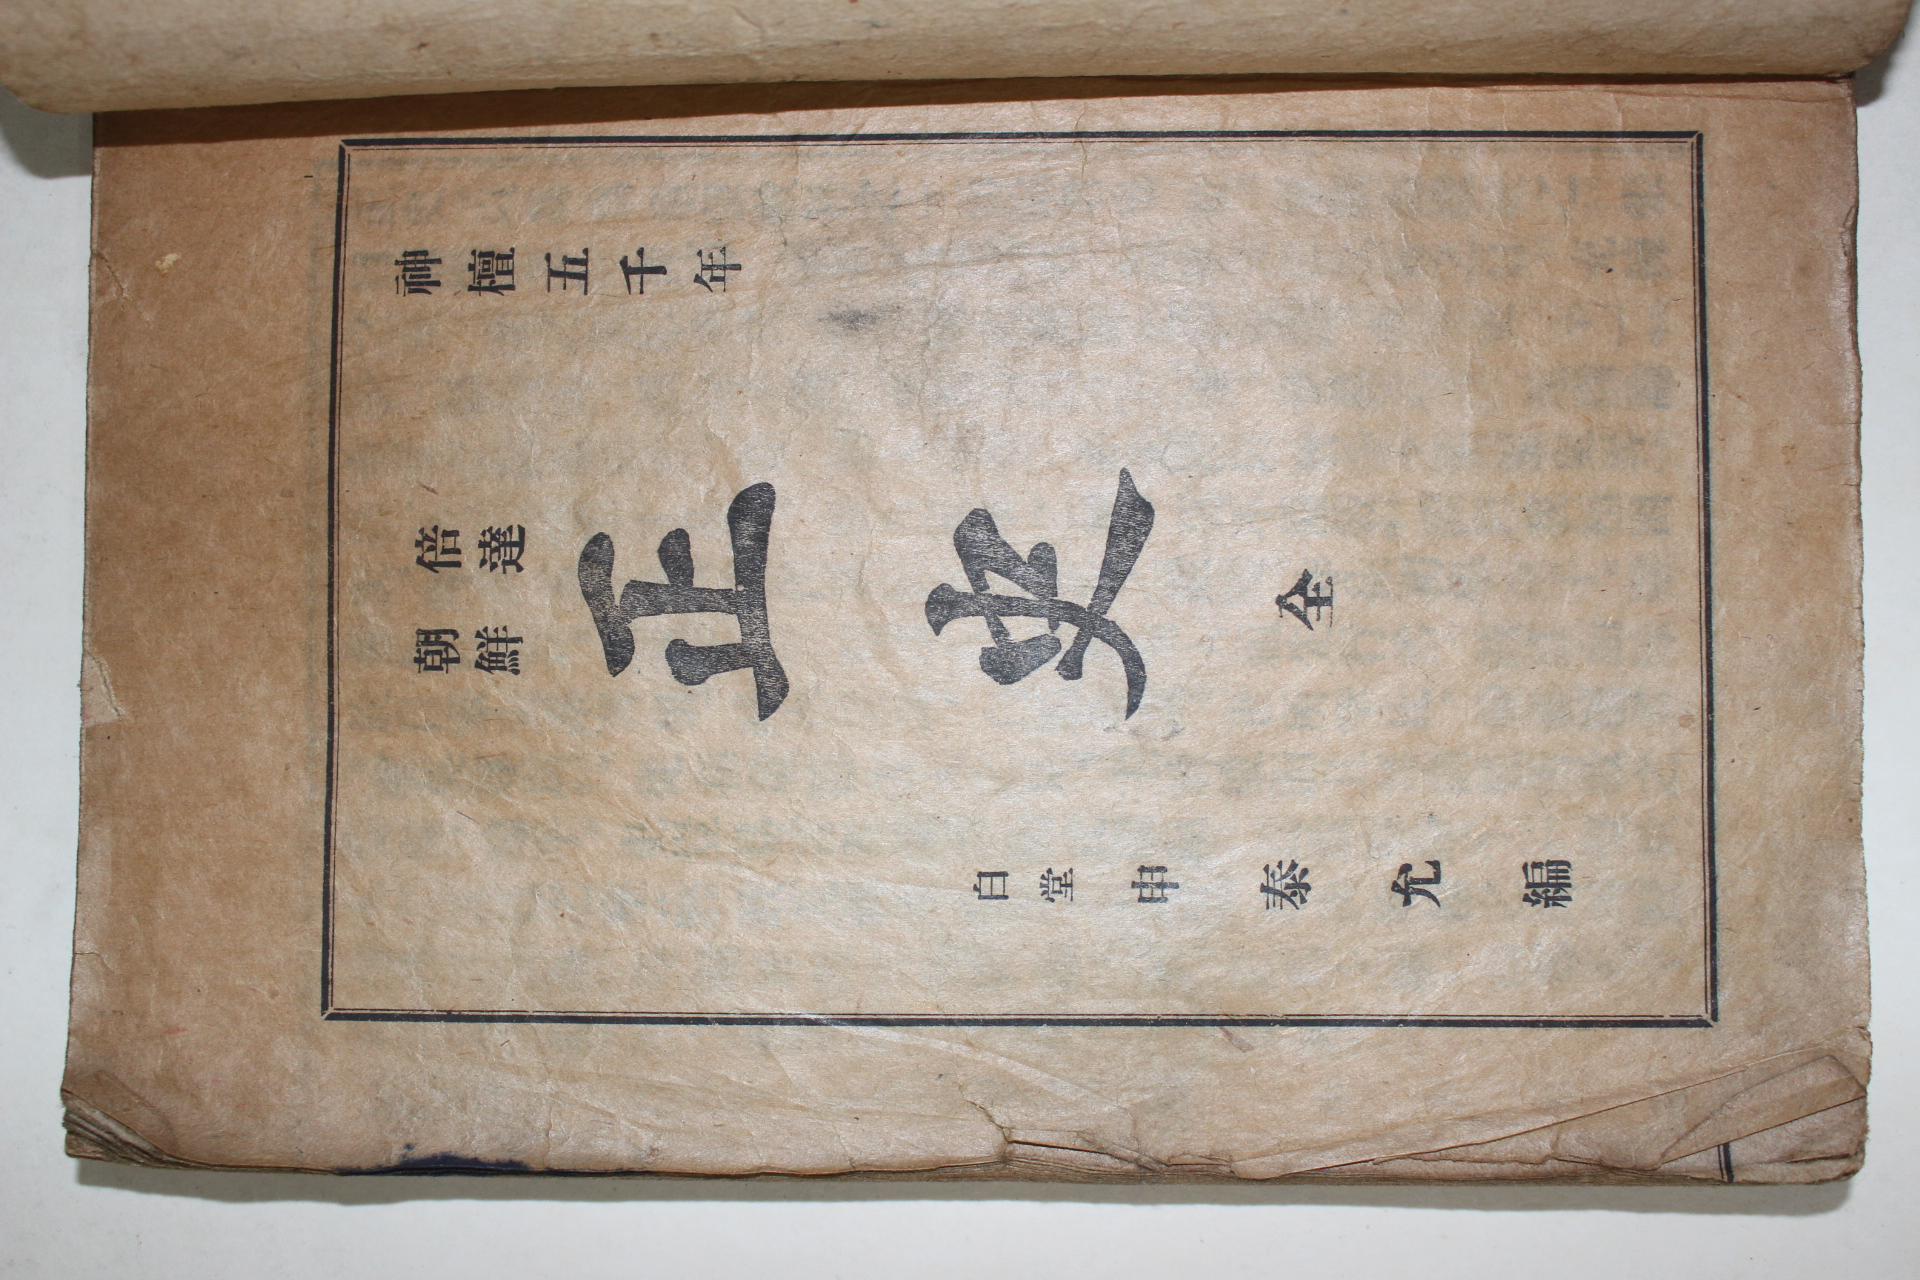 神檀五千年
倍達
朝鮮
正史 全
白堂 申泰允 編